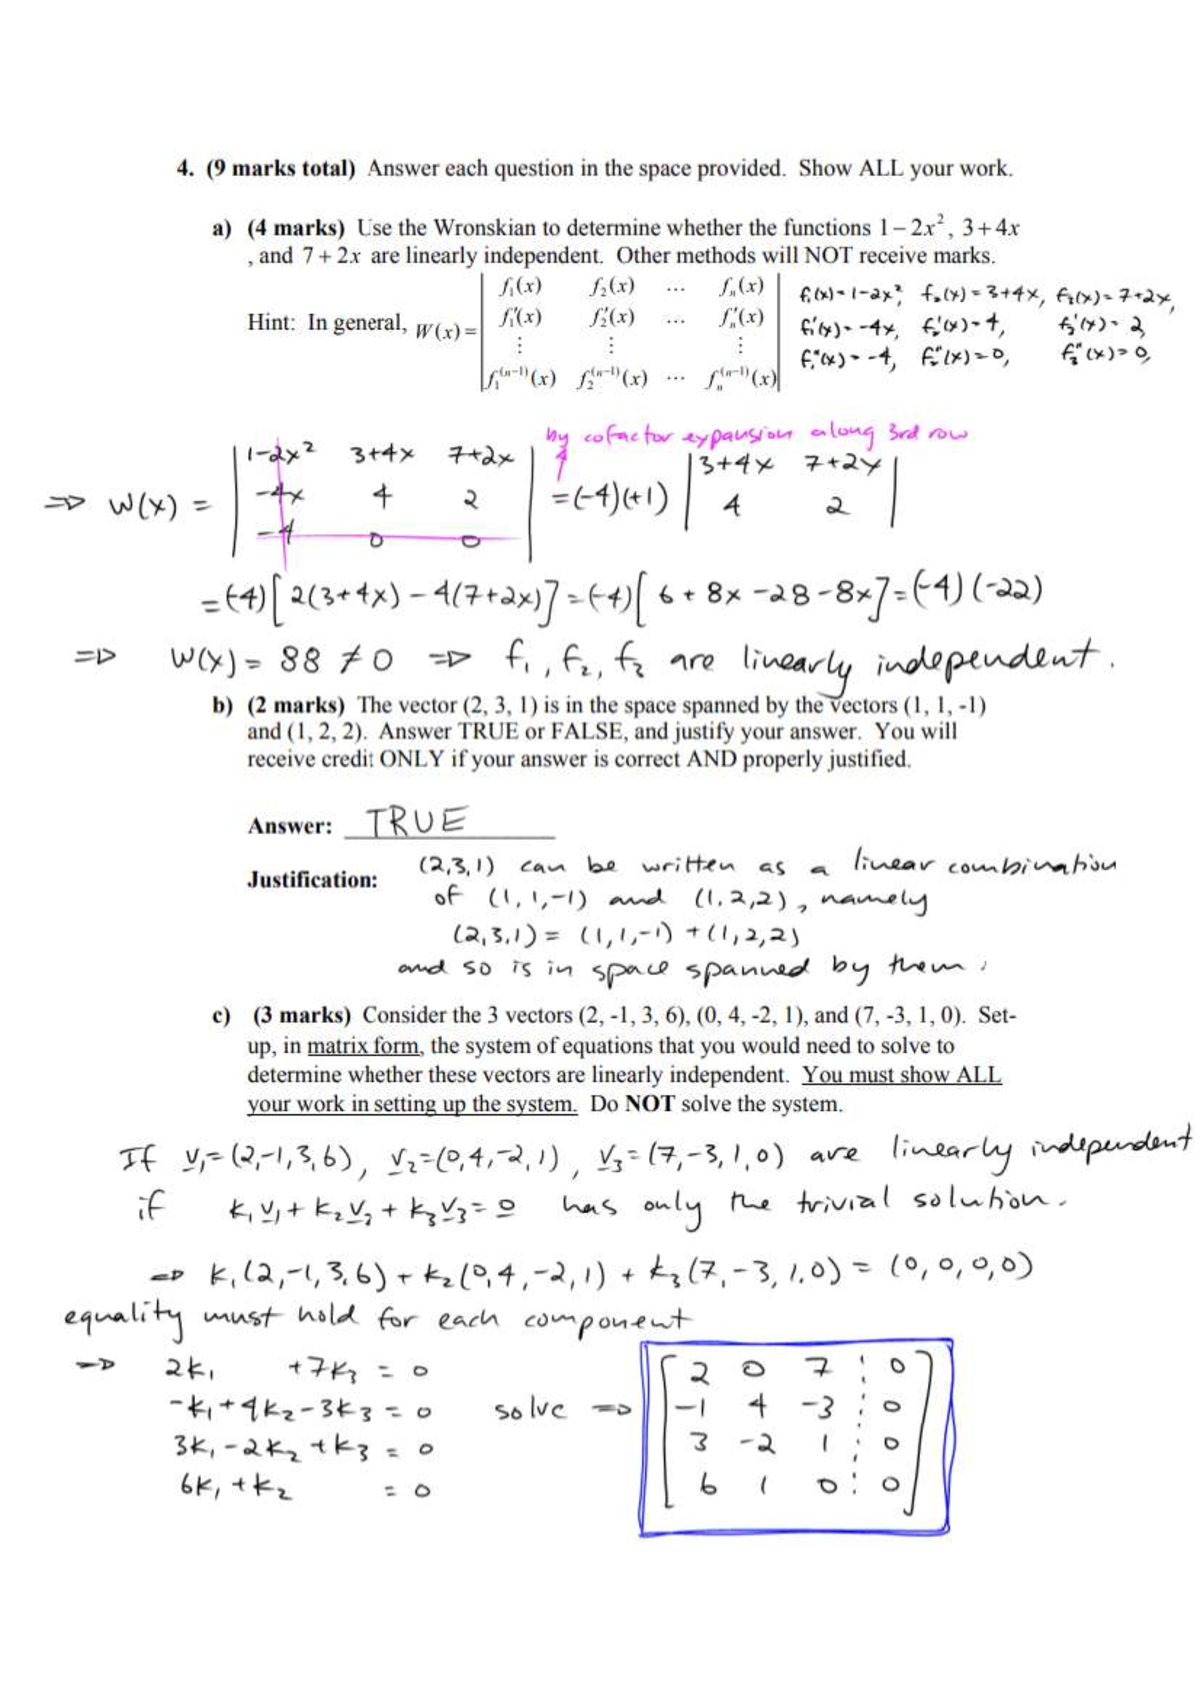 4. (9 marks total) Answer each question in the space provided. Show ALL your work.
a) (4 marks) Use the Wronskian to determine whether the functions 1 – 2x², 3 + 4x
, and 7 + 2x are linearly independent. Other methods will NOT receive marks.
Hint: In general, W(x) = | f₁(x) f₂(x) ... fₙ(x) |
| f₁'(x) f₂'(x) ... fₙ'(x) |
| ⋮ ⋮ ⋮ |
| f₁⁽ⁿ⁻¹⁾(x) f₂⁽ⁿ⁻¹⁾(x) ... fₙ⁽ⁿ⁻¹⁾(x) |
f₁(x) = 1-2x², f₂(x) = 3+4x, f₃(x) = 7+2x,
f₁'(x) = -4x, f₂'(x) = 4, f₃'(x) = 2,
f₁"(x) = -4, f₂"(x) = 0, f₃"(x) = 0,
by cofactor expansion along 3rd row
⇒ W(x) = | 1-2x² 3+4x 7+2x | = (-4)(+1) | 3+4x 7+2x |
| -4x 4 2 | | 4 2 |
| -4 0 0 |
= (-4)[2(3+4x) - 4(7+2x)] = (-4)[6 + 8x - 28 - 8x] = (-4)(-22)
⇒ W(x) = 88 ≠ 0 ⇒ f₁, f₂, f₃ are linearly independent.
b) (2 marks) The vector (2, 3, 1) is in the space spanned by the vectors (1, 1, -1)
and (1, 2, 2). Answer TRUE or FALSE, and justify your answer. You will
receive credit ONLY if your answer is correct AND properly justified.
Answer: TRUE
Justification: (2,3,1) can be written as a linear combination
of (1,1,-1) and (1,2,2), namely
(2,3,1) = (1,1,-1) + (1,2,2)
and so is in space spanned by them.
c) (3 marks) Consider the 3 vectors (2, -1, 3, 6), (0, 4, -2, 1), and (7, -3, 1, 0). Set-
up, in matrix form, the system of equations that you would need to solve to
determine whether these vectors are linearly independent. You must show ALL
your work in setting up the system. Do NOT solve the system.
If v₁=(2,-1,3,6), v₂=(0,4,-2,1), v₃=(7,-3,1,0) are linearly independent
if k₁v₁ + k₂v₂ + k₃v₃ = 0 has only the trivial solution.
⇒ k₁(2,-1,3,6) + k₂(0,4,-2,1) + k₃(7,-3,1,0) = (0,0,0,0)
equality must hold for each component
⇒ 2k₁ +7k₃ = 0
-k₁+4k₂-3k₃ = 0
3k₁-2k₂+k₃ = 0
6k₁+k₂ = 0
solve ⇒ [ 2 0 7 ⋮ 0 ]
[ -1 4 -3 ⋮ 0 ]
[ 3 -2 1 ⋮ 0 ]
[ 6 1 0 ⋮ 0 ]